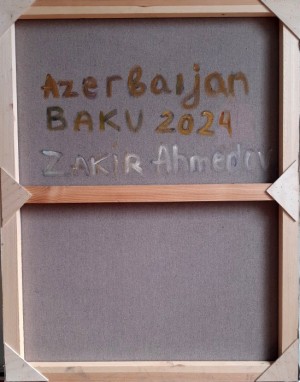 Azerbaijan
BAKU 2024
ZAKIR Ahmedov